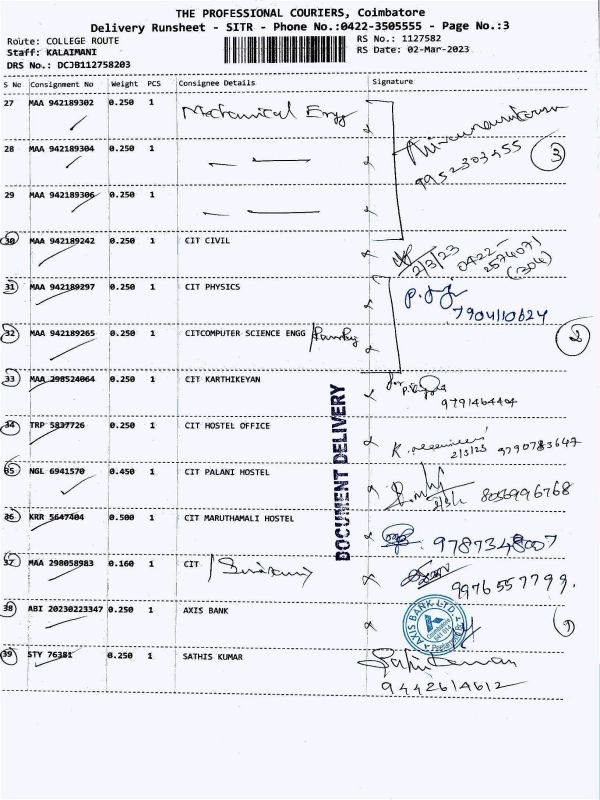 THE PROFESSIONAL COURIERS, Coimbatore
Delivery Runsheet - SITR - Phone No.:0422-3505555 - Page No.:3
Route: COLLEGE ROUTE
RS No.: 1127582
Staff: KALAIMANI
RS Date: 02-Mar-2023
DRS No.: DCJB112758203
S No Consignment No Weight PCS Consignee Details Signature
27 MAA 942189302 0.250 1 Mechanical Engg
9952303455 3
28 MAA 942189304 0.250 1
29 MAA 942189306 0.250 1
30 MAA 942189242 0.250 1 CIT CIVIL
2/3/23 0422-2574071 (304)
31 MAA 942189297 0.250 1 CIT PHYSICS
7904110624
32 MAA 942189265 0.250 1 CITCOMPUTER SCIENCE ENGG
2
33 MAA 298524064 0.250 1 CIT KARTHIKEYAN
for
9791464404
34 TRP 5837726 0.250 1 CIT HOSTEL OFFICE
2/3/23 9790783647
35 NGL 6941570 0.450 1 CIT PALANI HOSTEL
8056996768
36 KRR 5647404 0.500 1 CIT MARUTHAMALI HOSTEL
9787348007
37 MAA 298058983 0.160 1 CIT
9976557799.
38 ABI 20230223347 0.250 1 AXIS BANK
AXIS BANK LTD.
Coimbatore
39 STY 76381 0.250 1 SATHIS KUMAR
9442614612
DOCUMENT DELIVERY